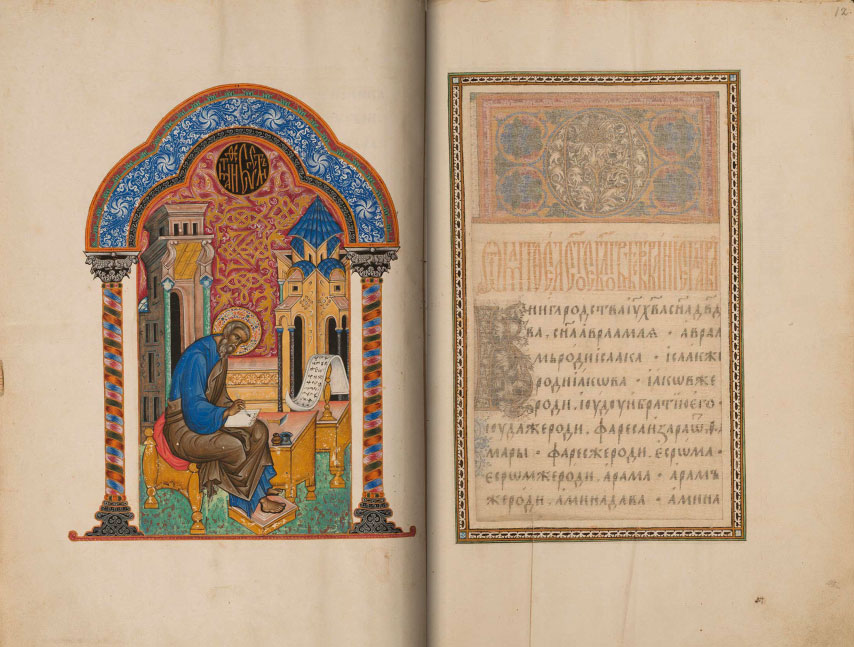 12
Книга родства іѵ хв҃а сн҃а дв҃д
ва, сн҃а авраамля · авраа
мъ роди ісаака · ісаак же
роди іакѡва · іакѡв же
роди, іюдꙋ и братию его ·
іюда же роди, фареса и зара ѿ ѳа
мары · фарес же роди, есрѡма ·
есрѡм же роди, арама · арамъ
же роди, аминадава · амина